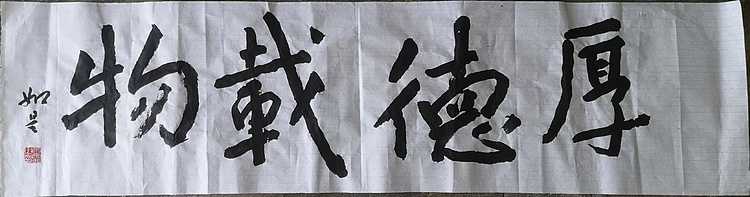 厚德載物
如是